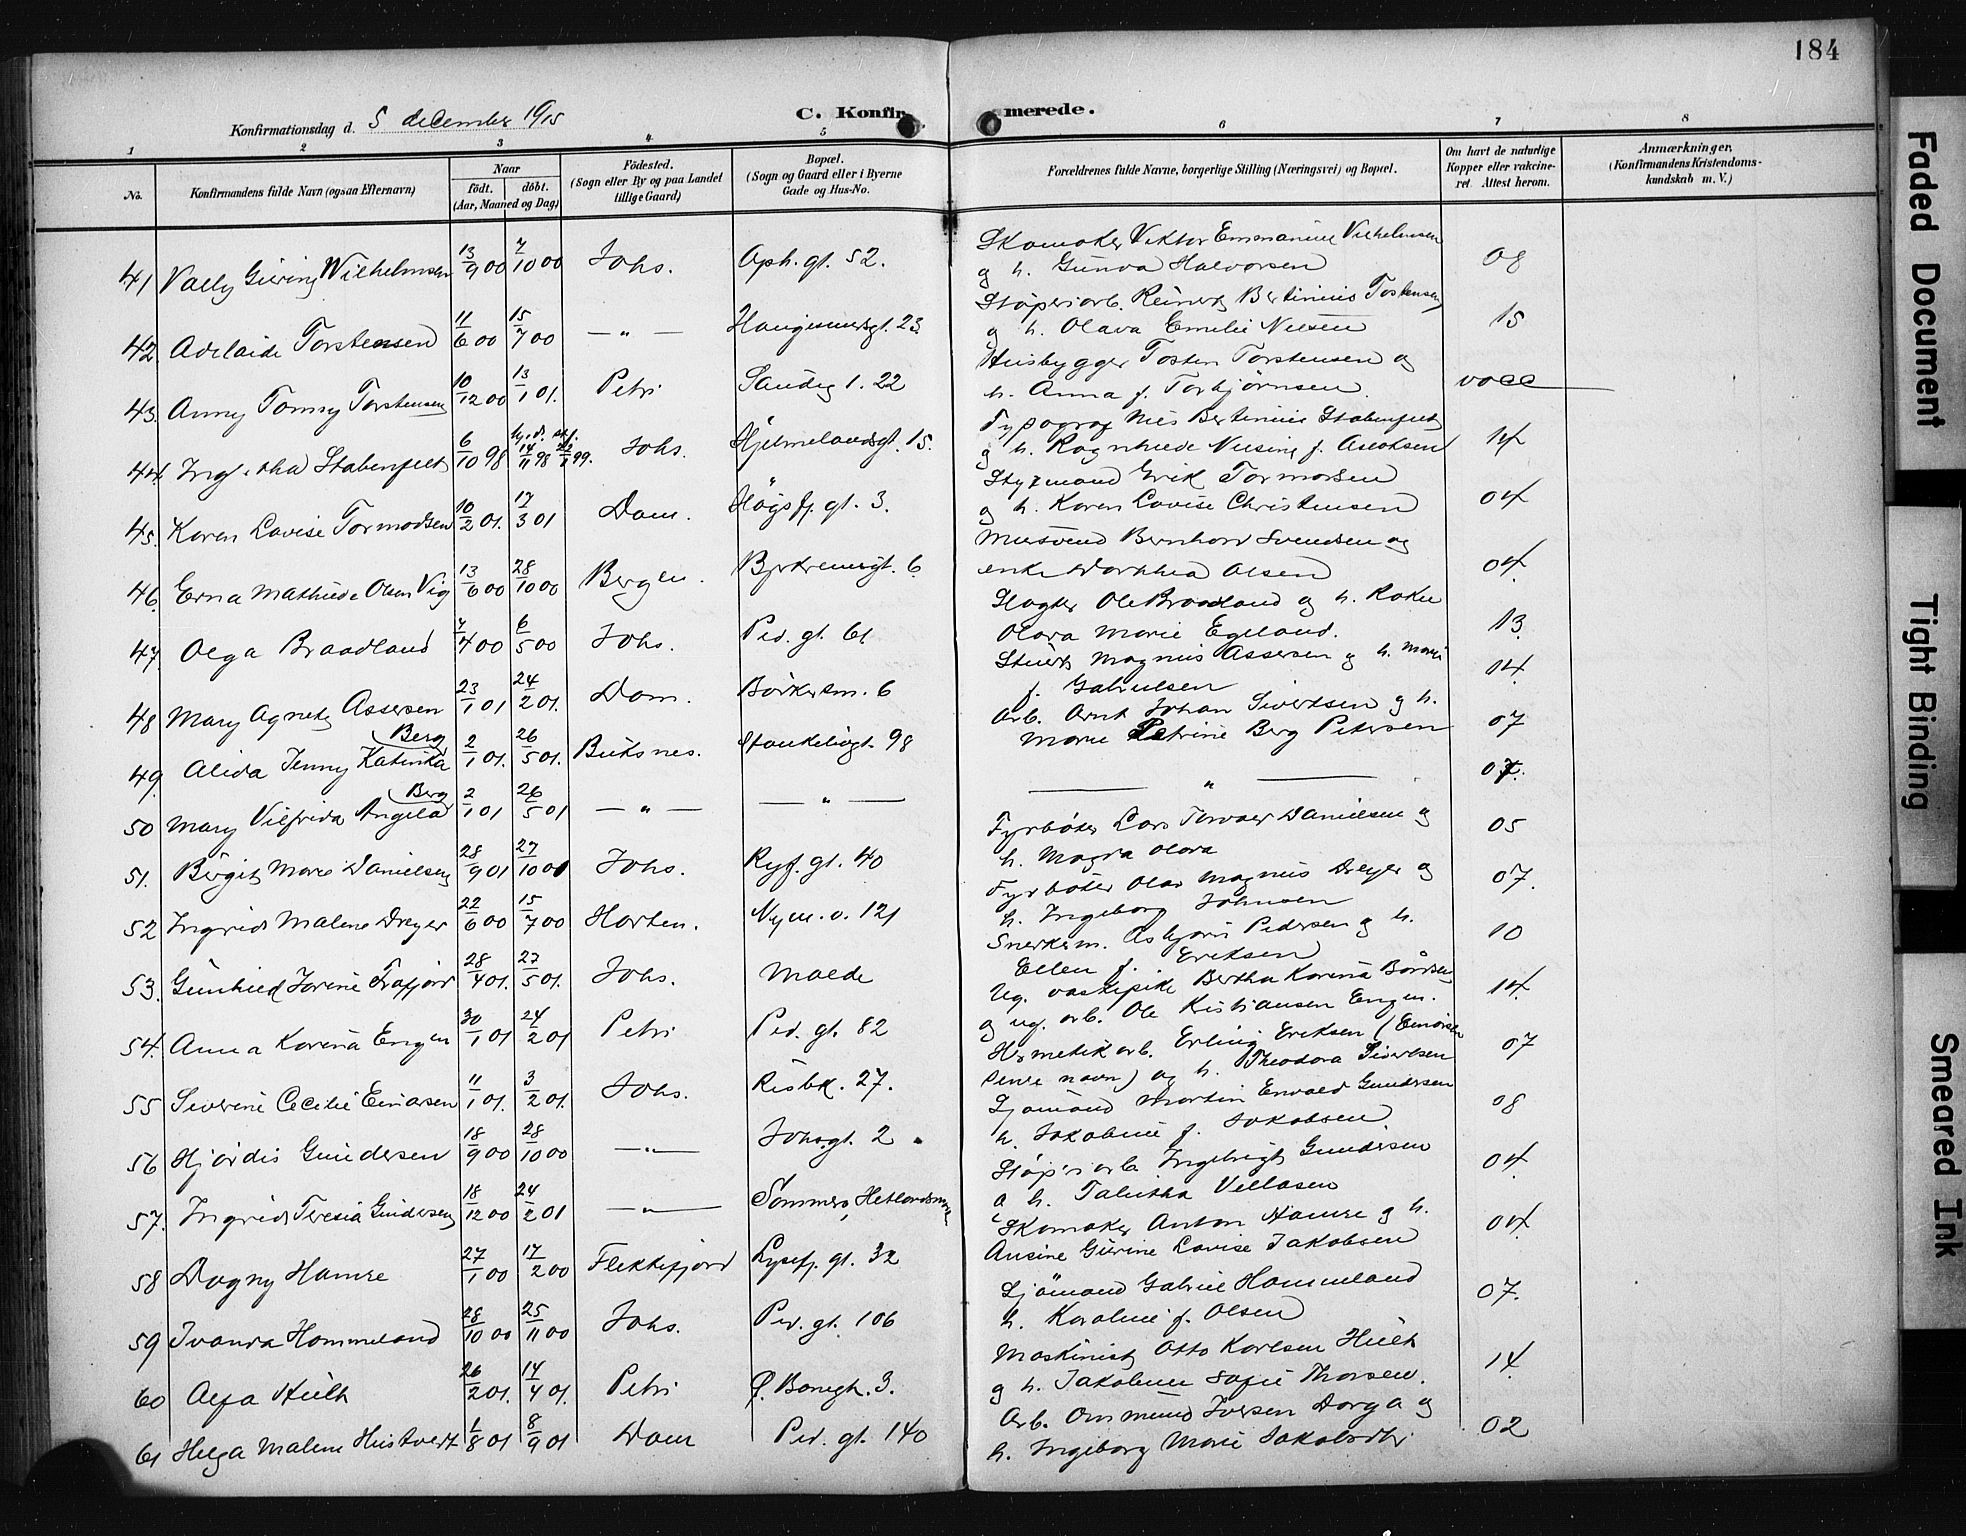 184
Konfirmationsdag d. 5 december 1915
C. Konfirmerede.
1 2 3 4 5 6 7 8
No.
Konfirmandens fulde Navn (ogsaa Efternavn)
Naar
födt. döbt.
(Aar, Maaned og Dag)
Födested.
(Sogn eller By og paa Landet
tillige Gaard)
Bopæl.
(Sogn og Gaard eller i Byerne
Gade og Hus-No.
Forældrenes fulde Navne, borgerlige Stilling (Næringsvei) og Bopæl.
Om havt de naturlige
Kopper eller vakcine-
ret. Attest herom.
Anmærkninger.
(Konfirmandens Kristendoms-
kundskab m. V.)
41 Vally Wilhelmsen 13/9 00 7/10 00 Johs. Oph. gt. 52. Skomaker Viktor Emmanuel Vilhelmsen
og h. Gunva Halvorsen 08
42 Adelaide Torstensen 11/6 00 15/7 00 — " — Haugesundsgt. 23 Støperiarb. Reinert Bertinius Tostensen
og h. Olava Emilie Nilsen 15
43. Anny Tomry Torstensen 10/12 00 13/1 01. Petri Sandeg 1. 22 Husbygger Tosten Torstensen og
h. Anna f. Torbjørnsen vacc
44. Stabenfeldt 6/10 98 hj. d. 14/11 98 99. Johs. Hjelmelandsgt. 15. Typograf Nils Bertinius Stabenfelt
og h. Ragnhilde f. 14
45. Karen Lovise Tormodsen 10/2 01. 17/3 01 Dom. Høgsfj. gt. 3. Styrmand Erik Tormodsen
og h. Karen Lovise Christensen 04
46. Erna Mathilde Olsen Vig 13/6 00 28/10 00 Bergen. gt. 6 Bernhard Svendsen og
enke Dorthea Olsen 04
47. Olga Braadland 7/4 00 6/5 00 Johs. Ped. gt. 61 Slagter Ole Braadland og h.
Olava Marie Egeland. 13
48 Mary Agnete Assersen 23/1 01 24/2 01. Dom. 6 Magnus Assersen og h. Marie
f. Gabrielsen 04
49. Alida Jenny Katinka Berg 2/1 01. 26/5 01. Buksnes. 98 Arb. Arnt Johan Sivertsen og h.
Marie Petrine Berg Petersen 07
50 Mary Vilfrida Angela Berg 2/1 01 26/5 01 — " — — " — — " — 07.
51. Birgit Marie Danielsen 28/9 01 27/10 01 Johs. Ryf. gt. 40 Fyrbøter Lars Danielsen og
h. Magda Olava 05
52 Ingrid Malene Dreyer 22/6 00 15/7 00 Horten. Nym. v. 121 Fyrbøter Olav Magnus Dreyer og
h. Ingeborg Johnsen 07.
53. Gunhild Jorine Frafjord 28/4 01. 27/5 01. Johs. Molde Snerkerm. Asbjørn Pedersen og h.
Ellen f. Eriksen 10
54. Anna Korina Engen 30/1 01 24/2 01 Petri Ped. gt. 82 Ug. vaskepike Bertha Korina
og ug. arb. Ole Kristiansen Engen. 14.
55 Severine Cecilie Einarsen 11/1 01. 3/2 01. Johs. Risbk. 27. Hermetikarb. Erling Eriksen (Einarsen
navn) og h. Theodora Sivertsen 07
56 Hjørdis Gundersen 18/9 00 28/10 00 — " — Johsgt. 2 Sjømand Martin Gundersen
h. Jakobine f. Jakobsen 08
57. Ingrid Teresia Gundersen 18/12 00 24/2 01 — " — Sommero, Hetlandsmk Ingebrigt Gundersen
h. Tabitha Villasen 04
58 Dagny Hamre 27/1 00 17/2 00 Flekkefjord Lysefj. gt. 32 Skomaker Anton Hamre og h.
Ausine Gurine Lovise Jakobsen 04.
59 Ivanda Hommeland 28/10 00 25/11 00 Johs. Ped. gt. 106 Sjømand Gabriel Hommeland
h. Karoline f. Olsen 07.
60 Alfa Hult 26/2 01. 14/4 01. Petri 3. Maskinist Otto Karlsen Hult
og h. Jakobine Sofie Thorsen. 14.
61 Helga Malene Hustvedt 1/8 01 8/9 01 Dom Ped. gt. 140 Arb. Ommund Iversen Dorga og
h. Ingeborg Marie 02
Faded Document
Tight Binding
Smeared Ink